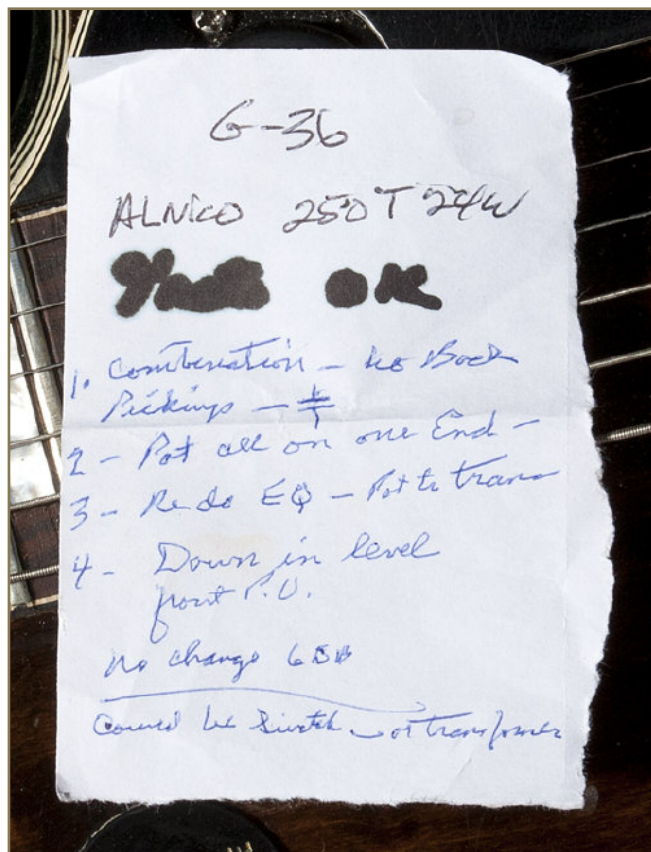 G-36
ALNICO 250T 24W
OK
1. Combination - no Back
Pickings -
2 - Pot all on one End -
3 - Redo EQ - Pot to trans
4 - Down in level
front P.U.
No change
Could be Switch - or transformer